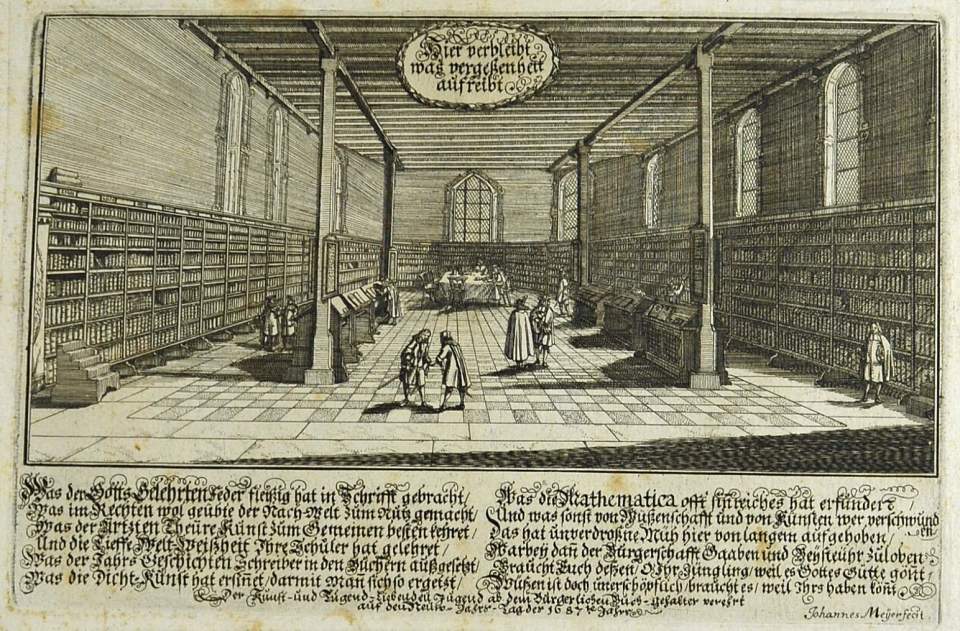 Hier verbleibt
waß vergeßenheit
aufreibt
Was der Gotts Gelehrten Feder fleißig hat in Schrifft gebracht/
Was im Rechten wol geübte der Nach-Welt zum Nutz gemacht/
Was der Artzten Theüre Kunst zum Gemeinen besten kehret/
Und die Tieffe Welt-Weißheit Ihre Schüler hat gelehret/
Was der Jahrs Geschichten Schreiber in den Büchern außgesetzt/
Was die Dicht-Kunst hat ersinet/darmit man sich so ergetzt/
Was die Mathematica offt sinreiches hat erfunden/
Und was sonst von Wüßenschafft und von Künsten wer verschwunden
Das hat unverdroßne Müh hier von langem aufgehoben/
Warbey dan der Bürgerschafft Gaaben und Beysteuhr zu loben
Braucht Euch deßen/O Ihr Jüngling/weil es Gottes Gütte gönt/
Wüßen ist doch unerschöpflich/braucht es/weil Ihrs haben könt
Der Kunst- und Tugend-liebenden Jugend ab dem Bürgerlichen Buch-gehalter verehrt
auf den Neüw-Jahrs-Tag des 1687ten Jahres
Johannes Meyer fecit.